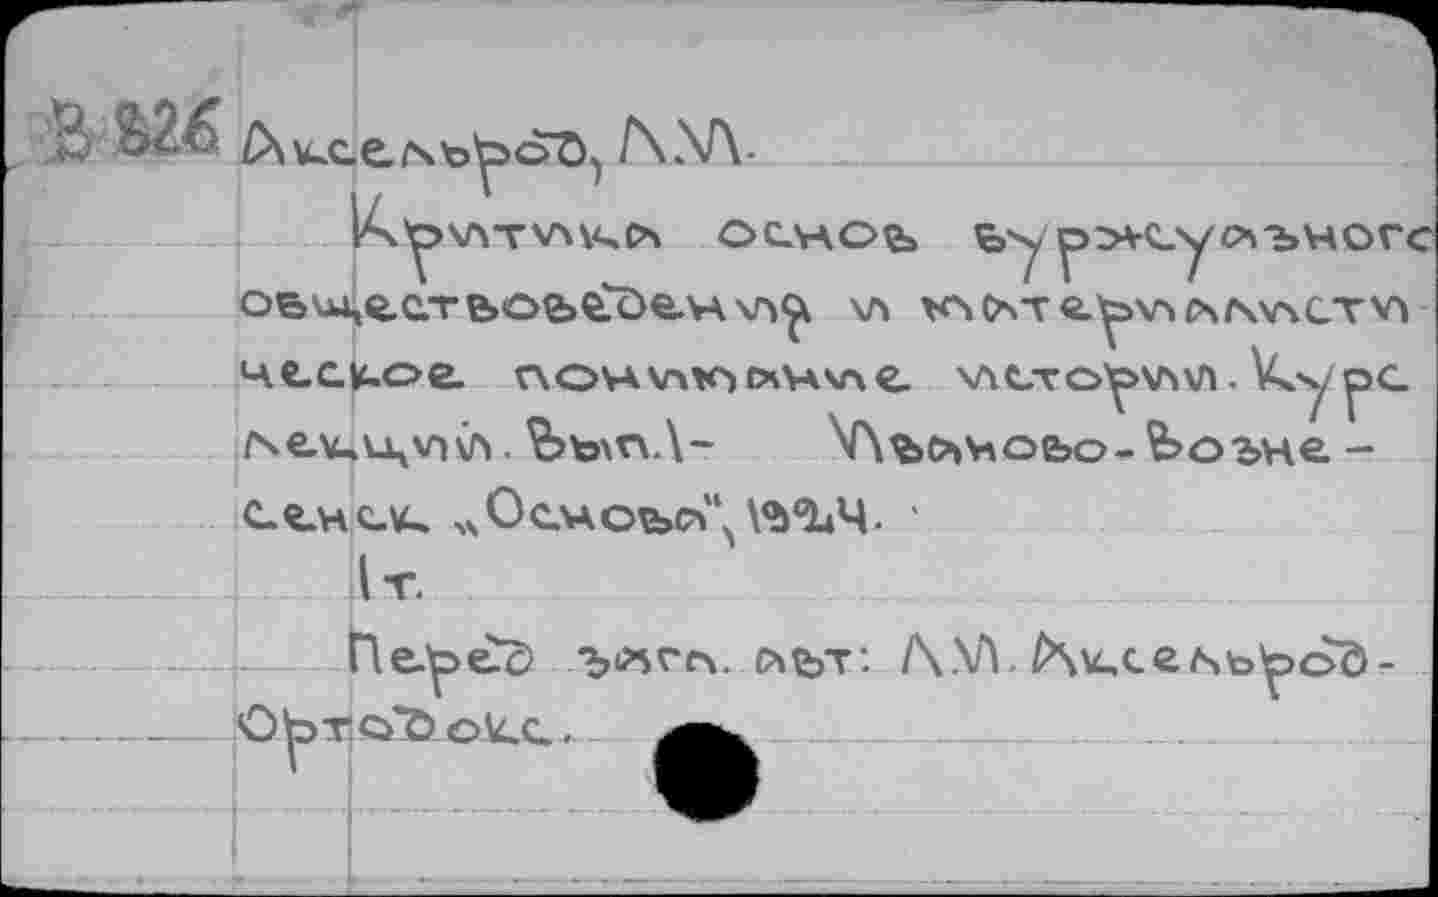 В 826 Аксельрод, Л.И.
Критика основ буржуазного
обществоведения и материалисти
ческое понимание истории. Курс
лекций. Вып.1- Иваново-Возне-
сенск „Основа", 1924.
1 т.
Перед загл. авт: Л.И. Аксельрод-
Ортодокс.